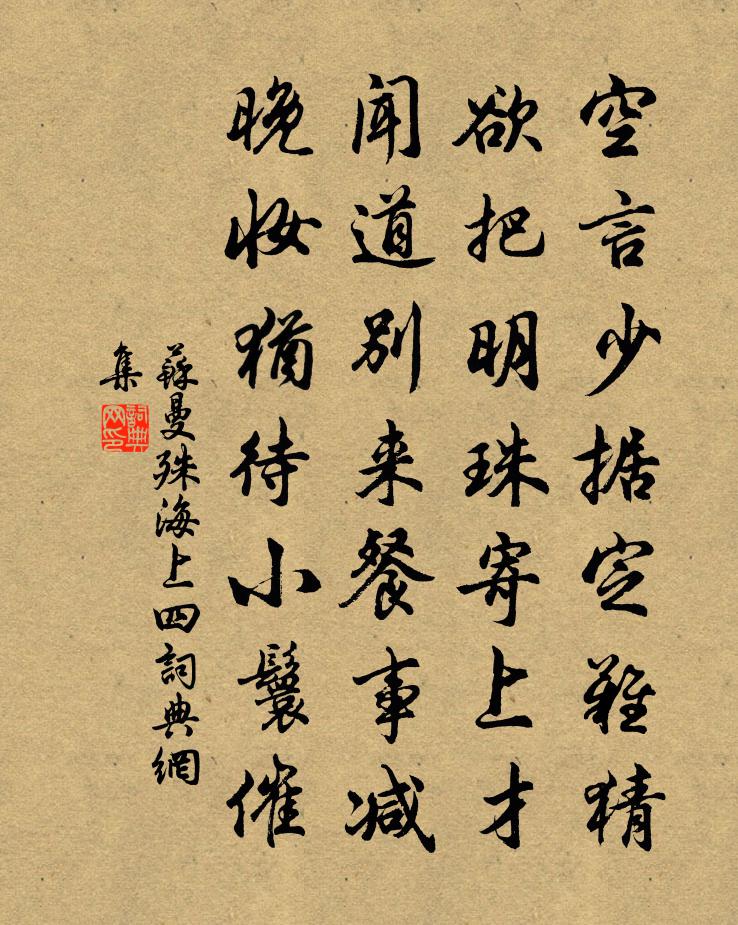 空言少据定难猜
欲把明珠寄上才
闻道别来餐事减
晚妆犹待小鬟催
蘇曼殊海上四詞典網
集
詞典
网印